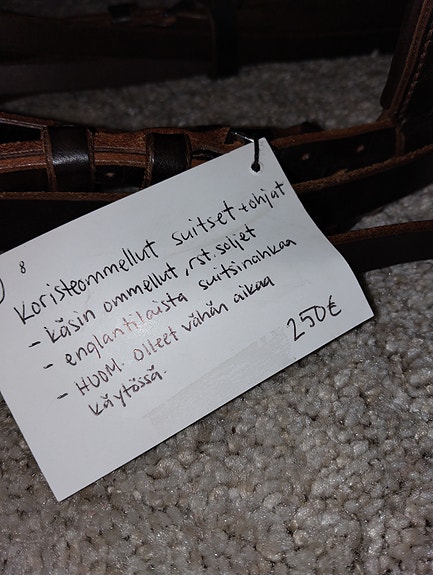 8
Koristeommellut suitset + ohjat
- käsin ommellut, rst. soljet
- englantilaista suitsinahkaa
- HUOM. Olleet vähän aikaa
käytössä.
250€